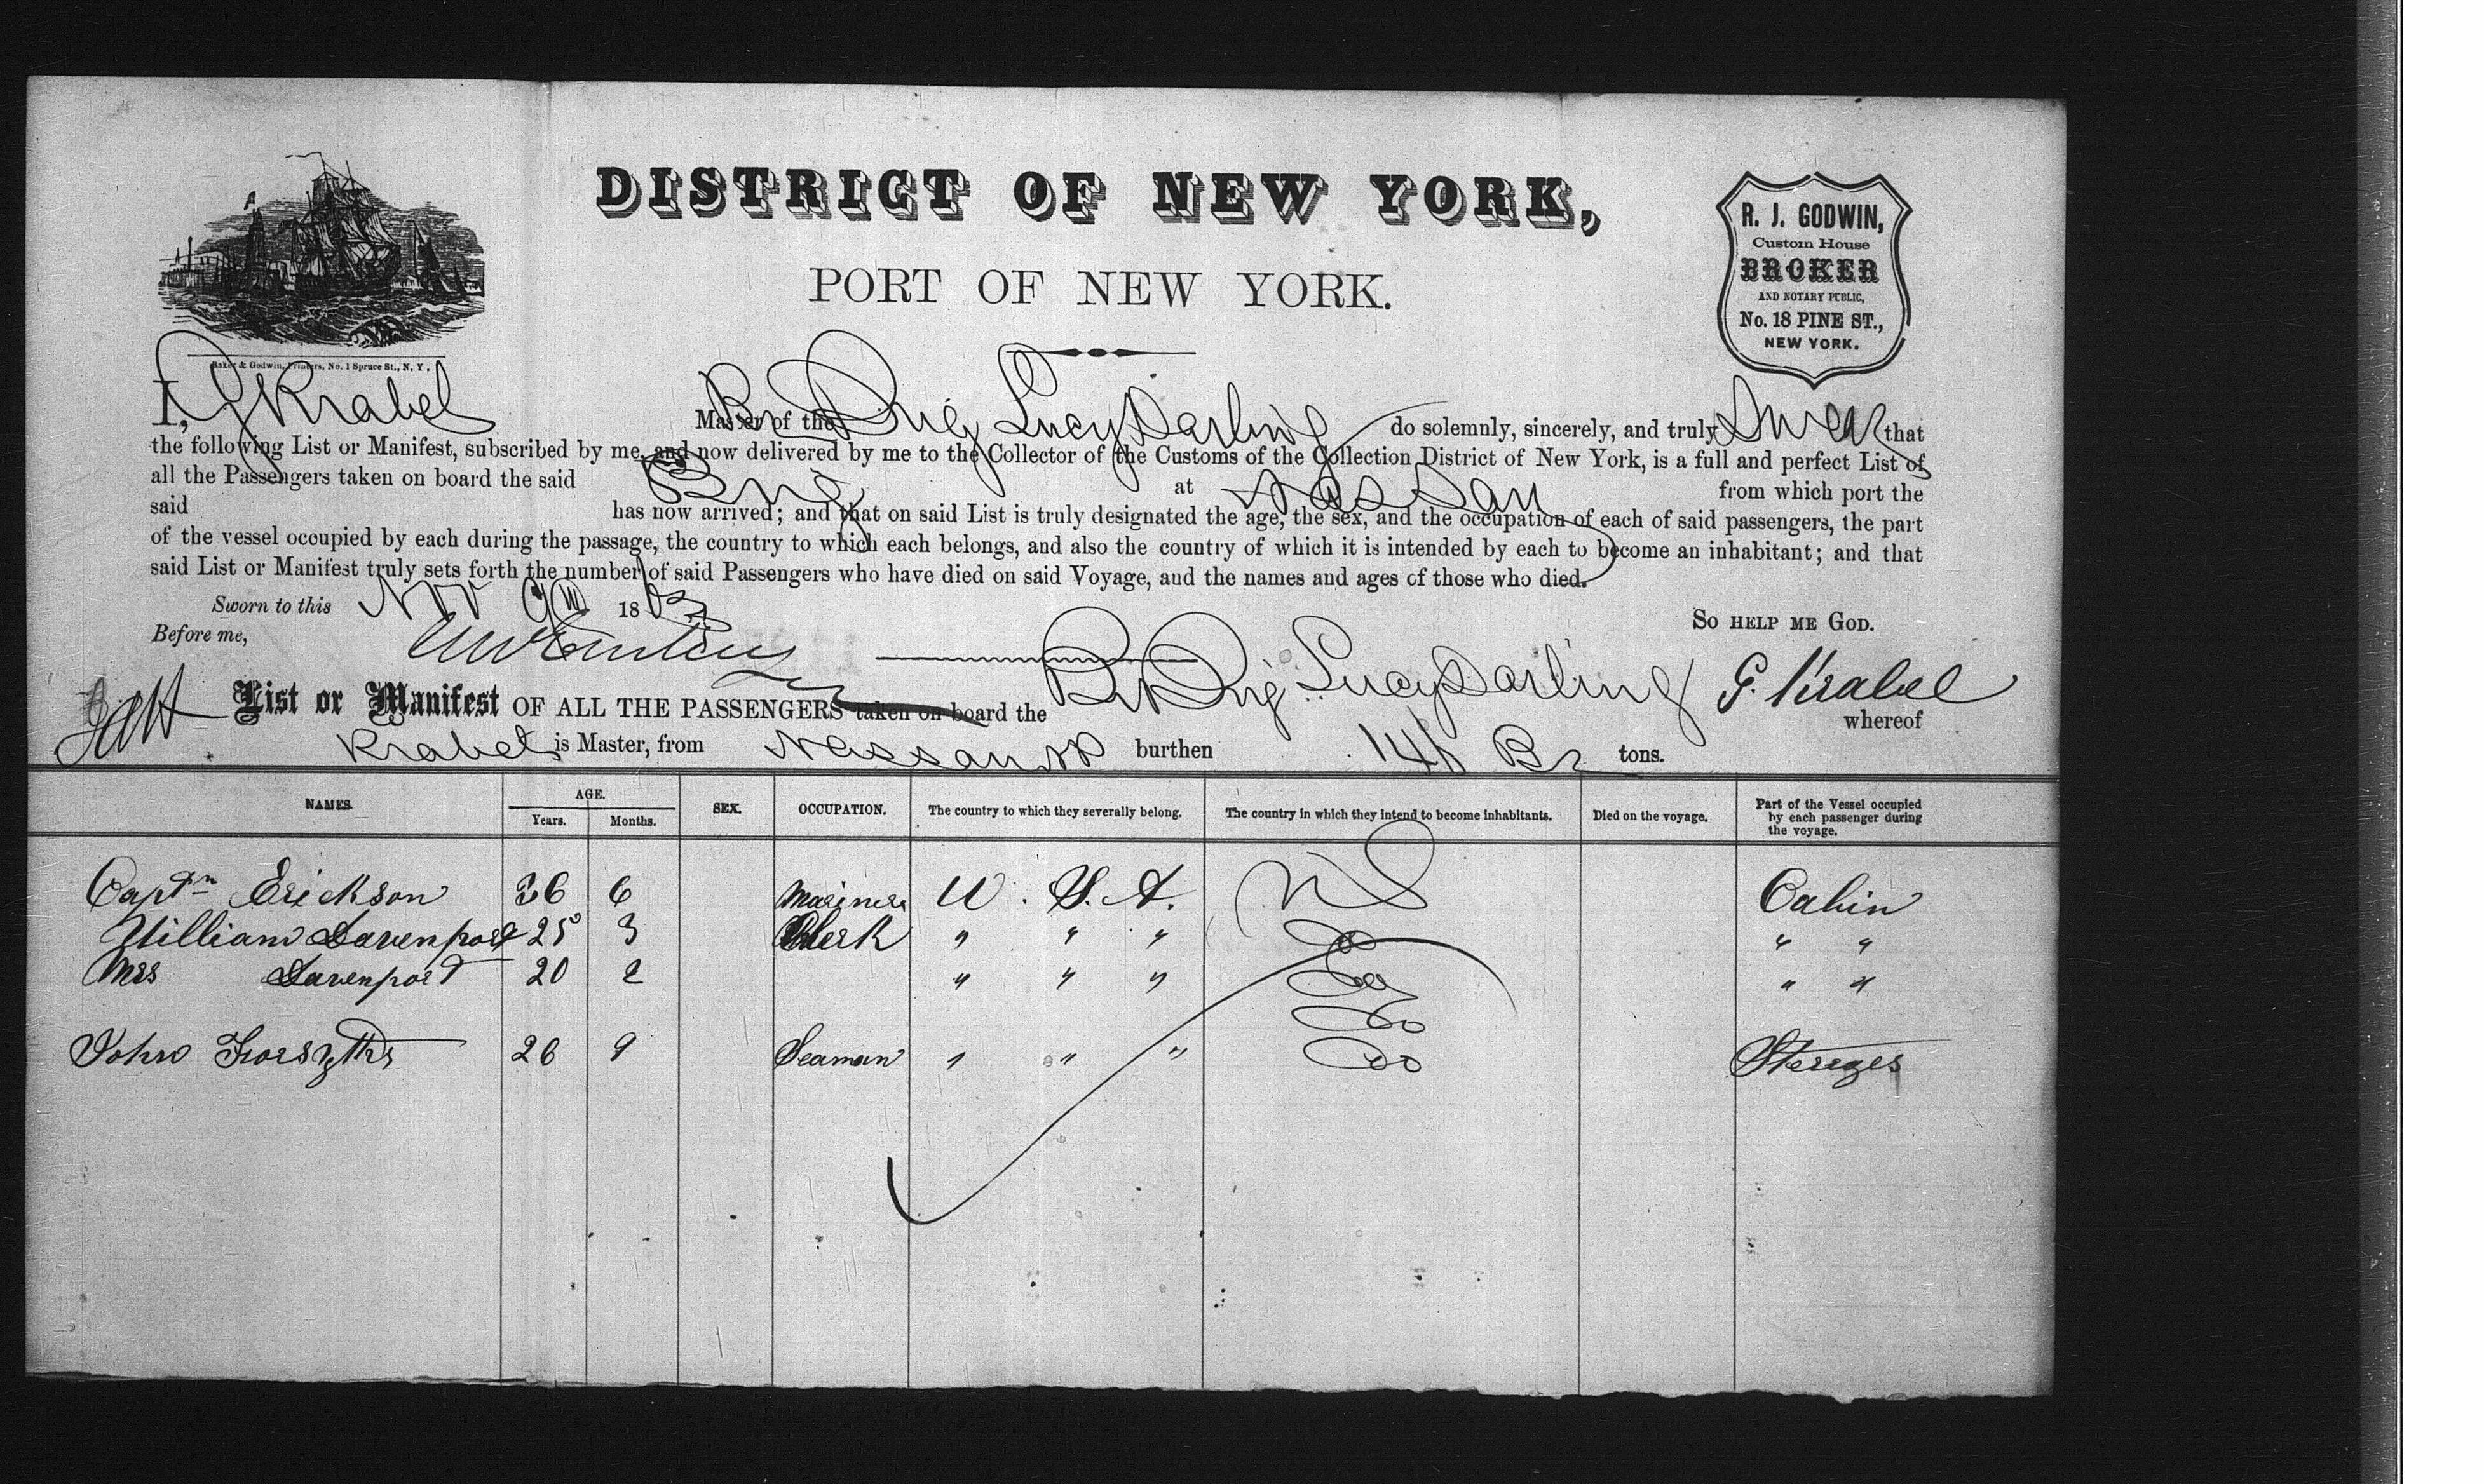 DISTRICT OF NEW YORK,
PORT OF NEW YORK.
R. J. GODWIN,
Custom House
BROKER
AND NOTARY PUBLIC,
No. 18 PINE ST.,
NEW YORK.
Baker & Godwin, Printers, No. 1 Spruce St., N. Y.
I, G Krabel Master of the Br Brig Lucy Darling do solemnly, sincerely, and truly Swear that
the following List or Manifest, subscribed by me, and now delivered by me to the Collector of the Customs of the Collection District of New York, is a full and perfect List of
all the Passengers taken on board the said Brig at Nassau from which port the
said has now arrived; and that on said List is truly designated the age, the sex, and the occupation of each of said passengers, the part
of the vessel occupied by each during the passage, the country to which each belongs, and also the country of which it is intended by each to become an inhabitant; and that
said List or Manifest truly sets forth the number of said Passengers who have died on said Voyage, aud the names and ages of those who died.
Sworn to this Nov 9th 1863 So help me God.
Before me,
G. Krabel
List or Manifest OF ALL THE PASSENGERS taken on board the Br Brig Lucy Darling whereof
Krabel is Master, from Nassau NP burthen Br tons.
NAMES. AGE. SEX. OCCUPATION. The country to which they severally belong. The country in which they intend to become inhabitants. Died on the voyage. Part of the Vessel occupied by each passenger during the voyage.
Years. Months.
Captn Erickson 36 6 Mariner U. S. A. US Cabin
William Davenport 25 3 Clerk " " " Do " "
Mrs Davenport 20 2 " " " Do " "
Do
John Forsythe 26 9 Seaman " " " Do Sterages